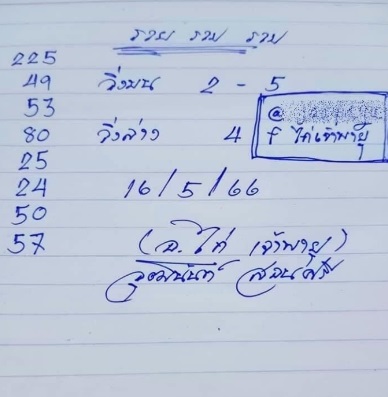 รวย รวย รวย
225
49 วิ่งบน 2 - 5
53
80 วิ่งล่าง 4
@
f ไก่เจ้าพายุ
25
24 16/5/66
50
57 (อ. ไก่ เจ้าพายุ)